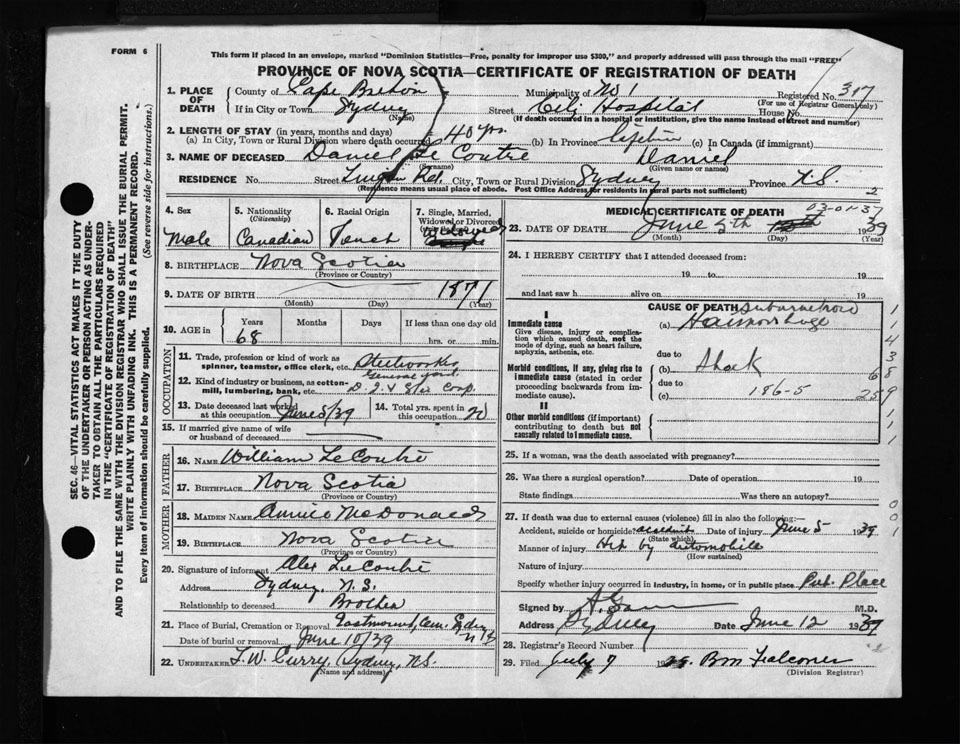 FORM 6
This form if placed in an envelope, marked "Dominion Statistics—Free, penalty for improper use $300," and properly addressed will pass through the mail "FREE"
PROVINCE OF NOVA SCOTIA—CERTIFICATE OF REGISTRATION OF DEATH
SEC. 46—VITAL STATISTICS ACT MAKES IT THE DUTY
OF THE UNDERTAKER OR PERSON ACTING AS UNDER-
TAKER TO OBTAIN ALL THE PARTICULARS REQUIRED
IN THE "CERTIFICATE OF REGISTRATION OF DEATH"
AND TO FILE THE SAME WITH THE DIVISION REGISTRAR WHO SHALL ISSUE THE BURIAL PERMIT.
WRITE PLAINLY WITH UNFADING INK. THIS IS A PERMANENT RECORD.
Every item of information should be carefully supplied. (See reverse side for instructions.)
1. PLACE OF DEATH
County of Cape Breton Municipality of No 1 Registered No. 317
(For use of Registrar General only)
If in City or Town Sydney Street City Hospital House No.
(Name)
(If death occurred in a hospital or institution, give the name instead of street and number)
2. LENGTH OF STAY (in years, months and days)
(a) In City, Town or Rural Division where death occurred 40 yrs. (b) In Province lifetime (c) In Canada (if immigrant)
3. NAME OF DECEASED Daniel Le Coutre Daniel
(Surname) (Given name or names)
RESIDENCE No. Street Lingan Rd. City, Town or Rural Division Sydney Province N.S.
(Residence means usual place of abode. Post Office Address for residents in rural parts not sufficient)
2
4. Sex
Male
5. Nationality
(Citizenship)
Canadian
6. Racial Origin
French
7. Single, Married,
Widowed or Divorced
8. BIRTHPLACE Nova Scotia
(Province or Country)
9. DATE OF BIRTH 1871
(Month) (Day) (Year)
10. AGE in Years Months Days If less than one day old
68 hrs. or min.
OCCUPATION
11. Trade, profession or kind of work as
spinner, teamster, office clerk, etc. Steelworker
12. Kind of industry or business, as cotton-
mill, lumbering, bank, etc. General yard
13. Date deceased last worked
at this occupation June 5/39
14. Total yrs. spent in
this occupation 20
15. If married give name of wife
or husband of deceased
FATHER
16. NAME William LeCoutre
17. BIRTHPLACE Nova Scotia
(Province or Country)
MOTHER
18. MAIDEN NAME Annie McDonald
19. BIRTHPLACE Nova Scotia
(Province or Country)
20. Signature of informant Alex LeCoutre
Address Sydney, N.S.
Relationship to deceased Brother
21. Place of Burial, Cremation or Removal Eastmount Cem. Sydney N.S.
Date of burial or removal June 10/39
22. UNDERTAKER T.W. Curry, Sydney, N.S.
(Name and address)
MEDICAL CERTIFICATE OF DEATH
03-01-37
23. DATE OF DEATH June 5th 1939
(Month) (Day) (Year)
24. I HEREBY CERTIFY that I attended deceased from:
19 to 19
and last saw h alive on 19
CAUSE OF DEATH
I
Immediate cause
Give disease, injury or complica-
tion which caused death, not the
mode of dying, such as heart failure,
asphyxia, asthenia, etc.
(a) Subarachnoid
Haemorrhage
due to
Morbid conditions, if any, giving rise to
immediate cause (stated in order
proceeding backwards from im-
mediate cause).
(b) Shock
due to
(c) 186-5
II
Other morbid conditions (if important)
contributing to death but not
causally related to immediate cause.
25. If a woman, was the death associated with pregnancy?
26. Was there a surgical operation? Date of operation 19
State findings Was there an autopsy?
27. If death was due to external causes (violence) fill in also the following:—
Accident, suicide or homicide? accident Date of injury June 5 1939
(State which)
Manner of injury Hit by automobile
(How sustained)
Nature of injury
Specify whether injury occurred in industry, in home, or in public place Pub. Place
Signed by M.D.
Address Sydney Date June 12 1939
28. Registrar's Record Number
29. Filed July 7 1939. Falconer
(Division Registrar)